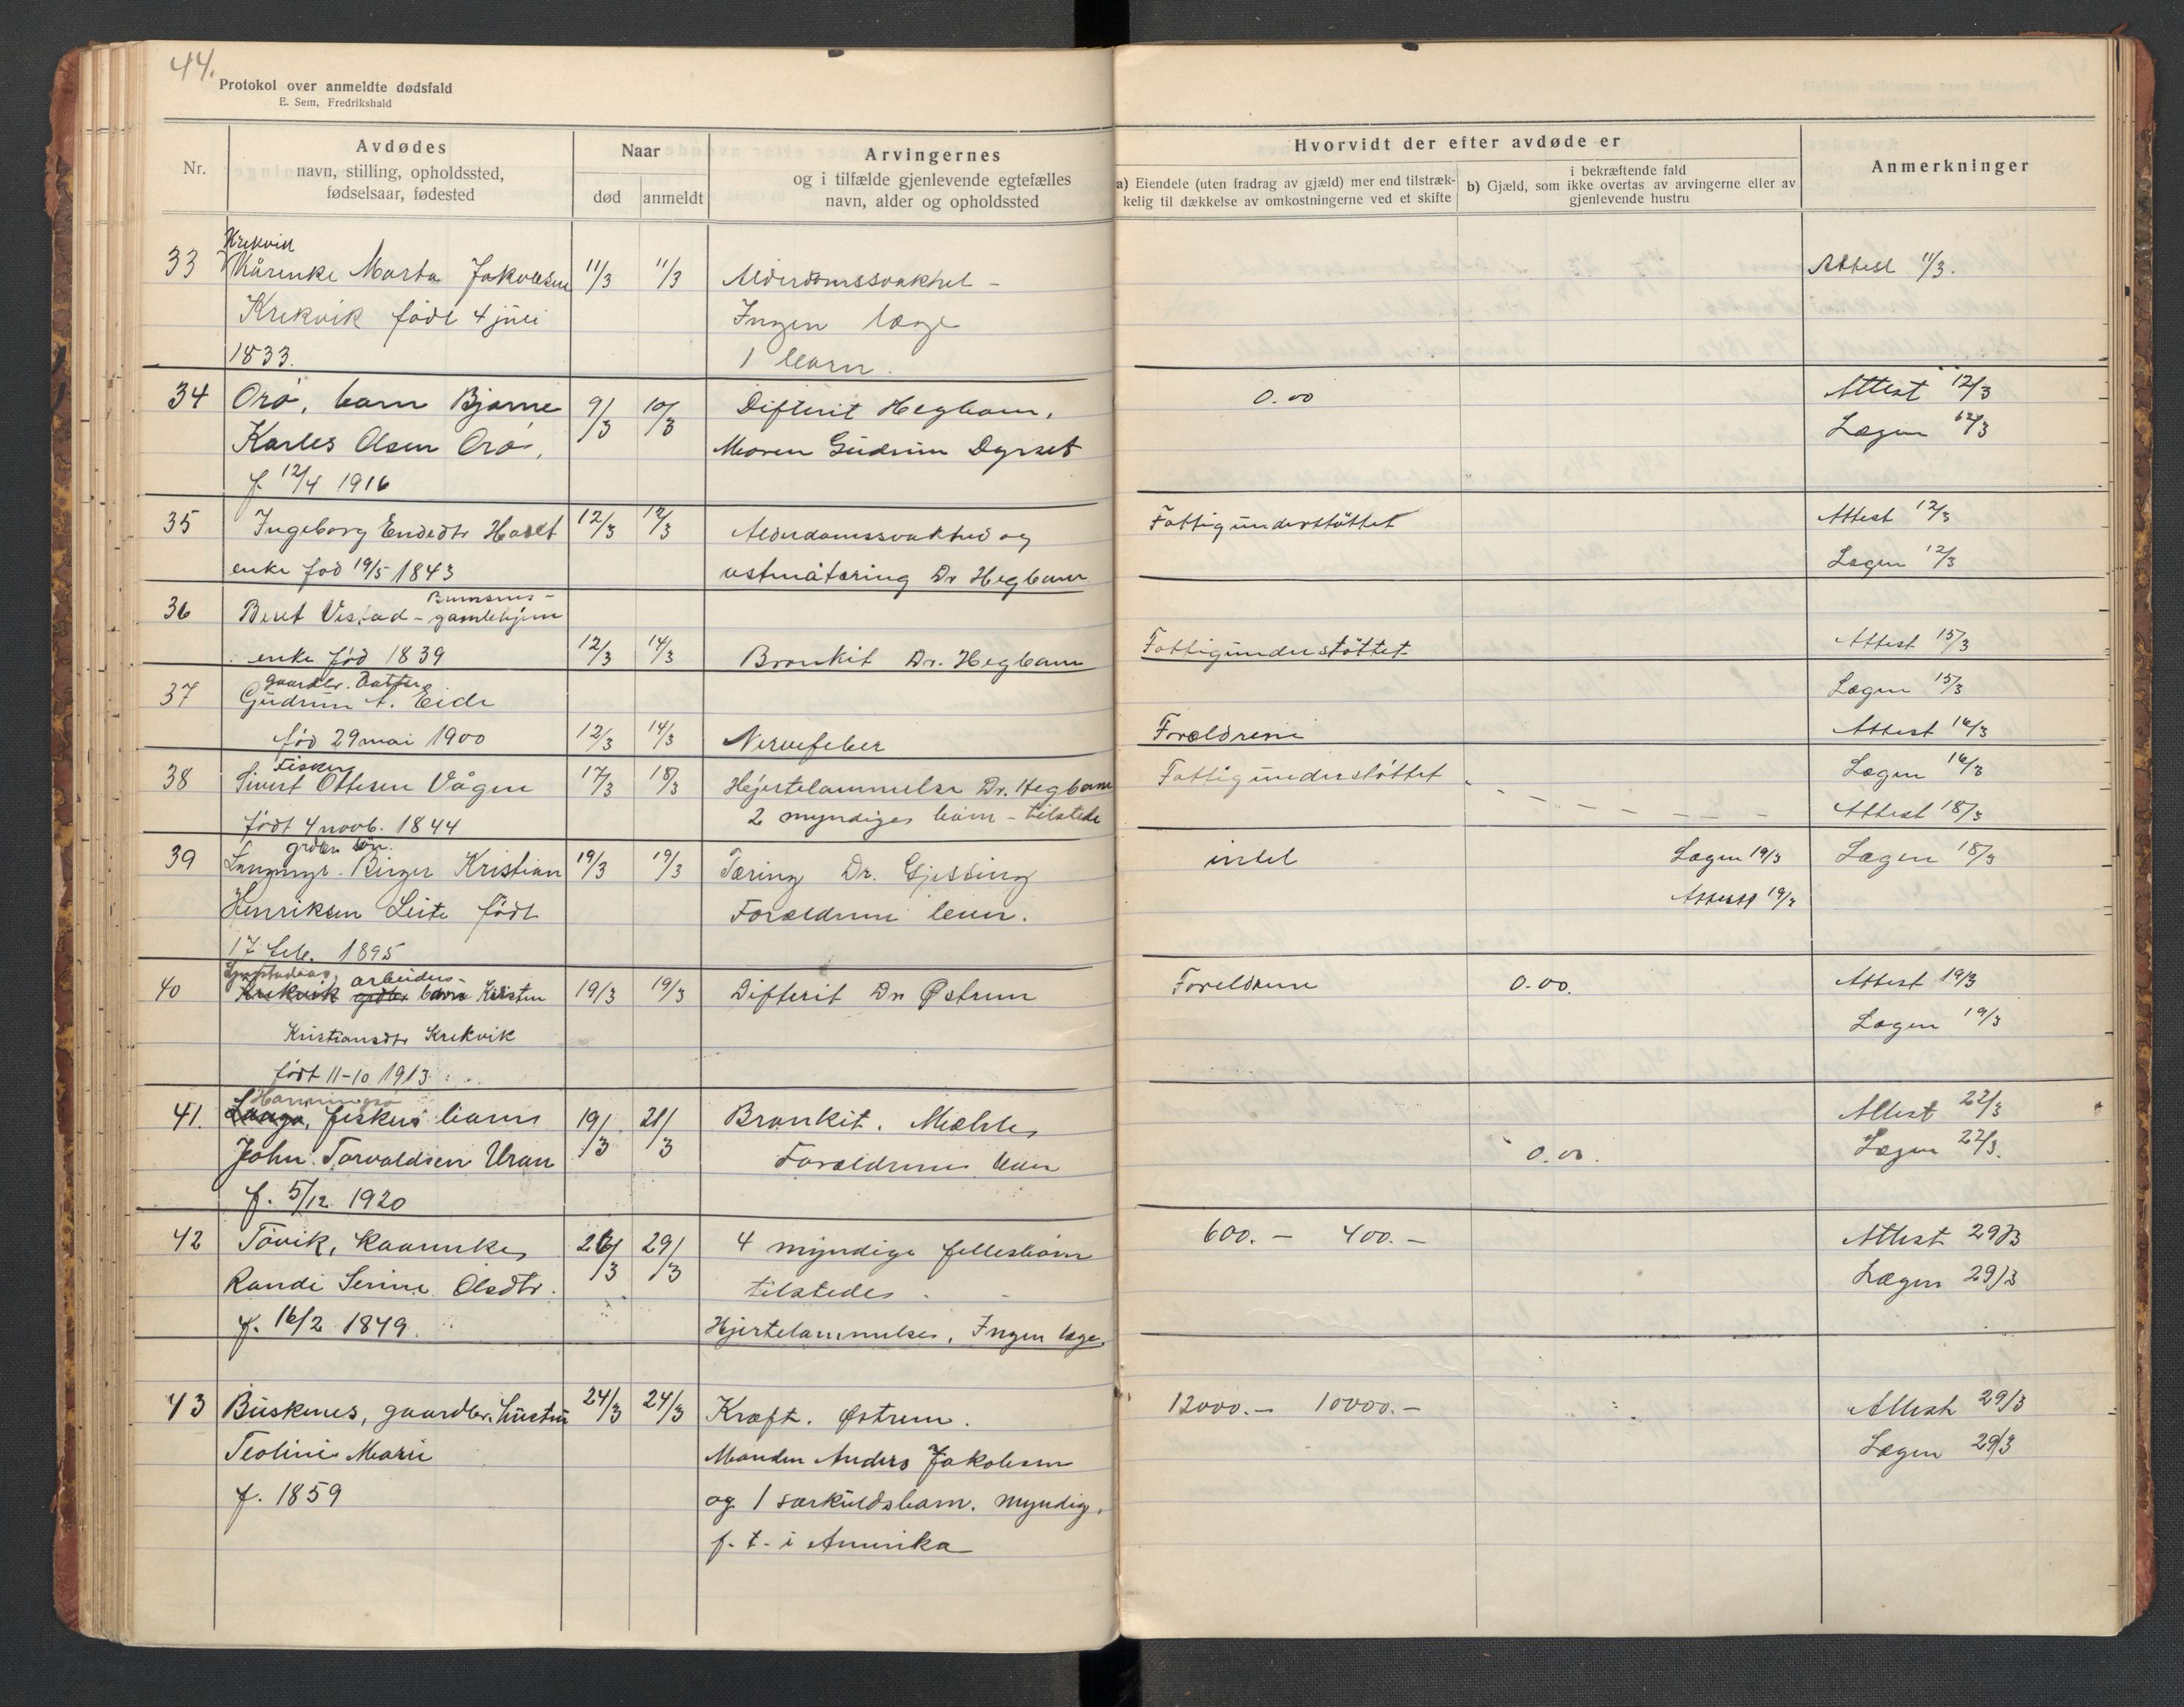 44.
Protokol over anmeldte dødsfald
E. Sem, Fredrikshald
Nr.
Avdødes
navn, stilling, opholdssted,
fødselsaar, fødested
Naar
død
anmeldt
Arvingernes
og i tilfælde gjenlevende egtefælles
navn, alder og opholdssted
Hvorvidt der efter avdøde er
a) Eiendele (uten fradrag av gjæld) mer end tilstræk-
kelig til dækkelse av omkostningerne ved et skifte
i bekræftende fald
b) Gjæld, som ikke overtas av arvingerne eller av
gjenlevende hustru
Anmerkninger
Krekvik
33 Kårenke Marta Jakobsen 11/3 11/3 Alderdomssvakhet - Attest 11/3.
Krekvik født 4 juli Ingen læge
1833. 1 barn.
34 Orø, barn Bjarne 9/3 10/3 Difterit Hegbom. 0.00 Attest 12/3
Karles Olsen Orø, Moren Gudrun Dyrset Lægen 12/3
f. 12/4 1916
35 Ingeborg Endedtr Haset 12/3 12/3 Alderdomssvakhed og Fattigunderstøttet Attest 12/3
enke fød 19/5 1843 Dr Hegbom Lægen 12/3
36 Beret Vestad - gamlehjem
enke fød 1839 12/3 14/3 Bronkit Dr. Hegbom Fattigunderstøttet Attest 15/3
gaardbr. Datter Lægen 15/3
37 Gudrun A. Eide
fød 29 mai 1900 12/3 14/3 Nervefeber Forældrene Attest 16/3
Fisker
38 Sivert Ottesen Vågen 17/3 18/3 Hjertelammelse Dr. Hegbom Fattigunderstøttet Lægen 16/3
født 4 novb. 1844 2 myndige barn - tilstede Attest 18/3
grdbr søn.
39 Langmyr. Birger Kristian 19/3 19/3 Tæring Dr. Gjessing intet Lægen 19/3 Lægen 18/3
Henriksen Leite født Forældrene lever. Attest 19/3
17 feb. 1895
arbeiders-
40 Krekvik grdbr barn Kirsten 19/3 19/3 Difterit Dr Østrem Foreldrene 0.00. Attest 19/3
Kristiansdtr Krekvik Lægen 19/3
født 11-10 1913
41. fiskers barn 19/3 21/3 Bronkit. Mæhle Attest 22/3
John Torvaldsen Uran Forældrene lever 0.00. Lægen 22/3.
f. 5/12 1920
42 Tøvik, kaarenke 26/3 29/3 4 myndige fellesbarn 600.- 400.- Attest 29/3
Randi Serine Olsdtr. tilstede. Lægen 29/3
f. 16/2 1849. Hjertelammelse, Ingen læge.
43 Buskenes, gaardbr. hustru 24/3 24/3 Kræft. Østrem. 12000.- 10000.- Attest 29/3
Teoline Marie Manden Anders Jakobsen Lægen 29/3
f. 1859 og 1 særkuldsbarn. myndig.
f. t. i Amerika